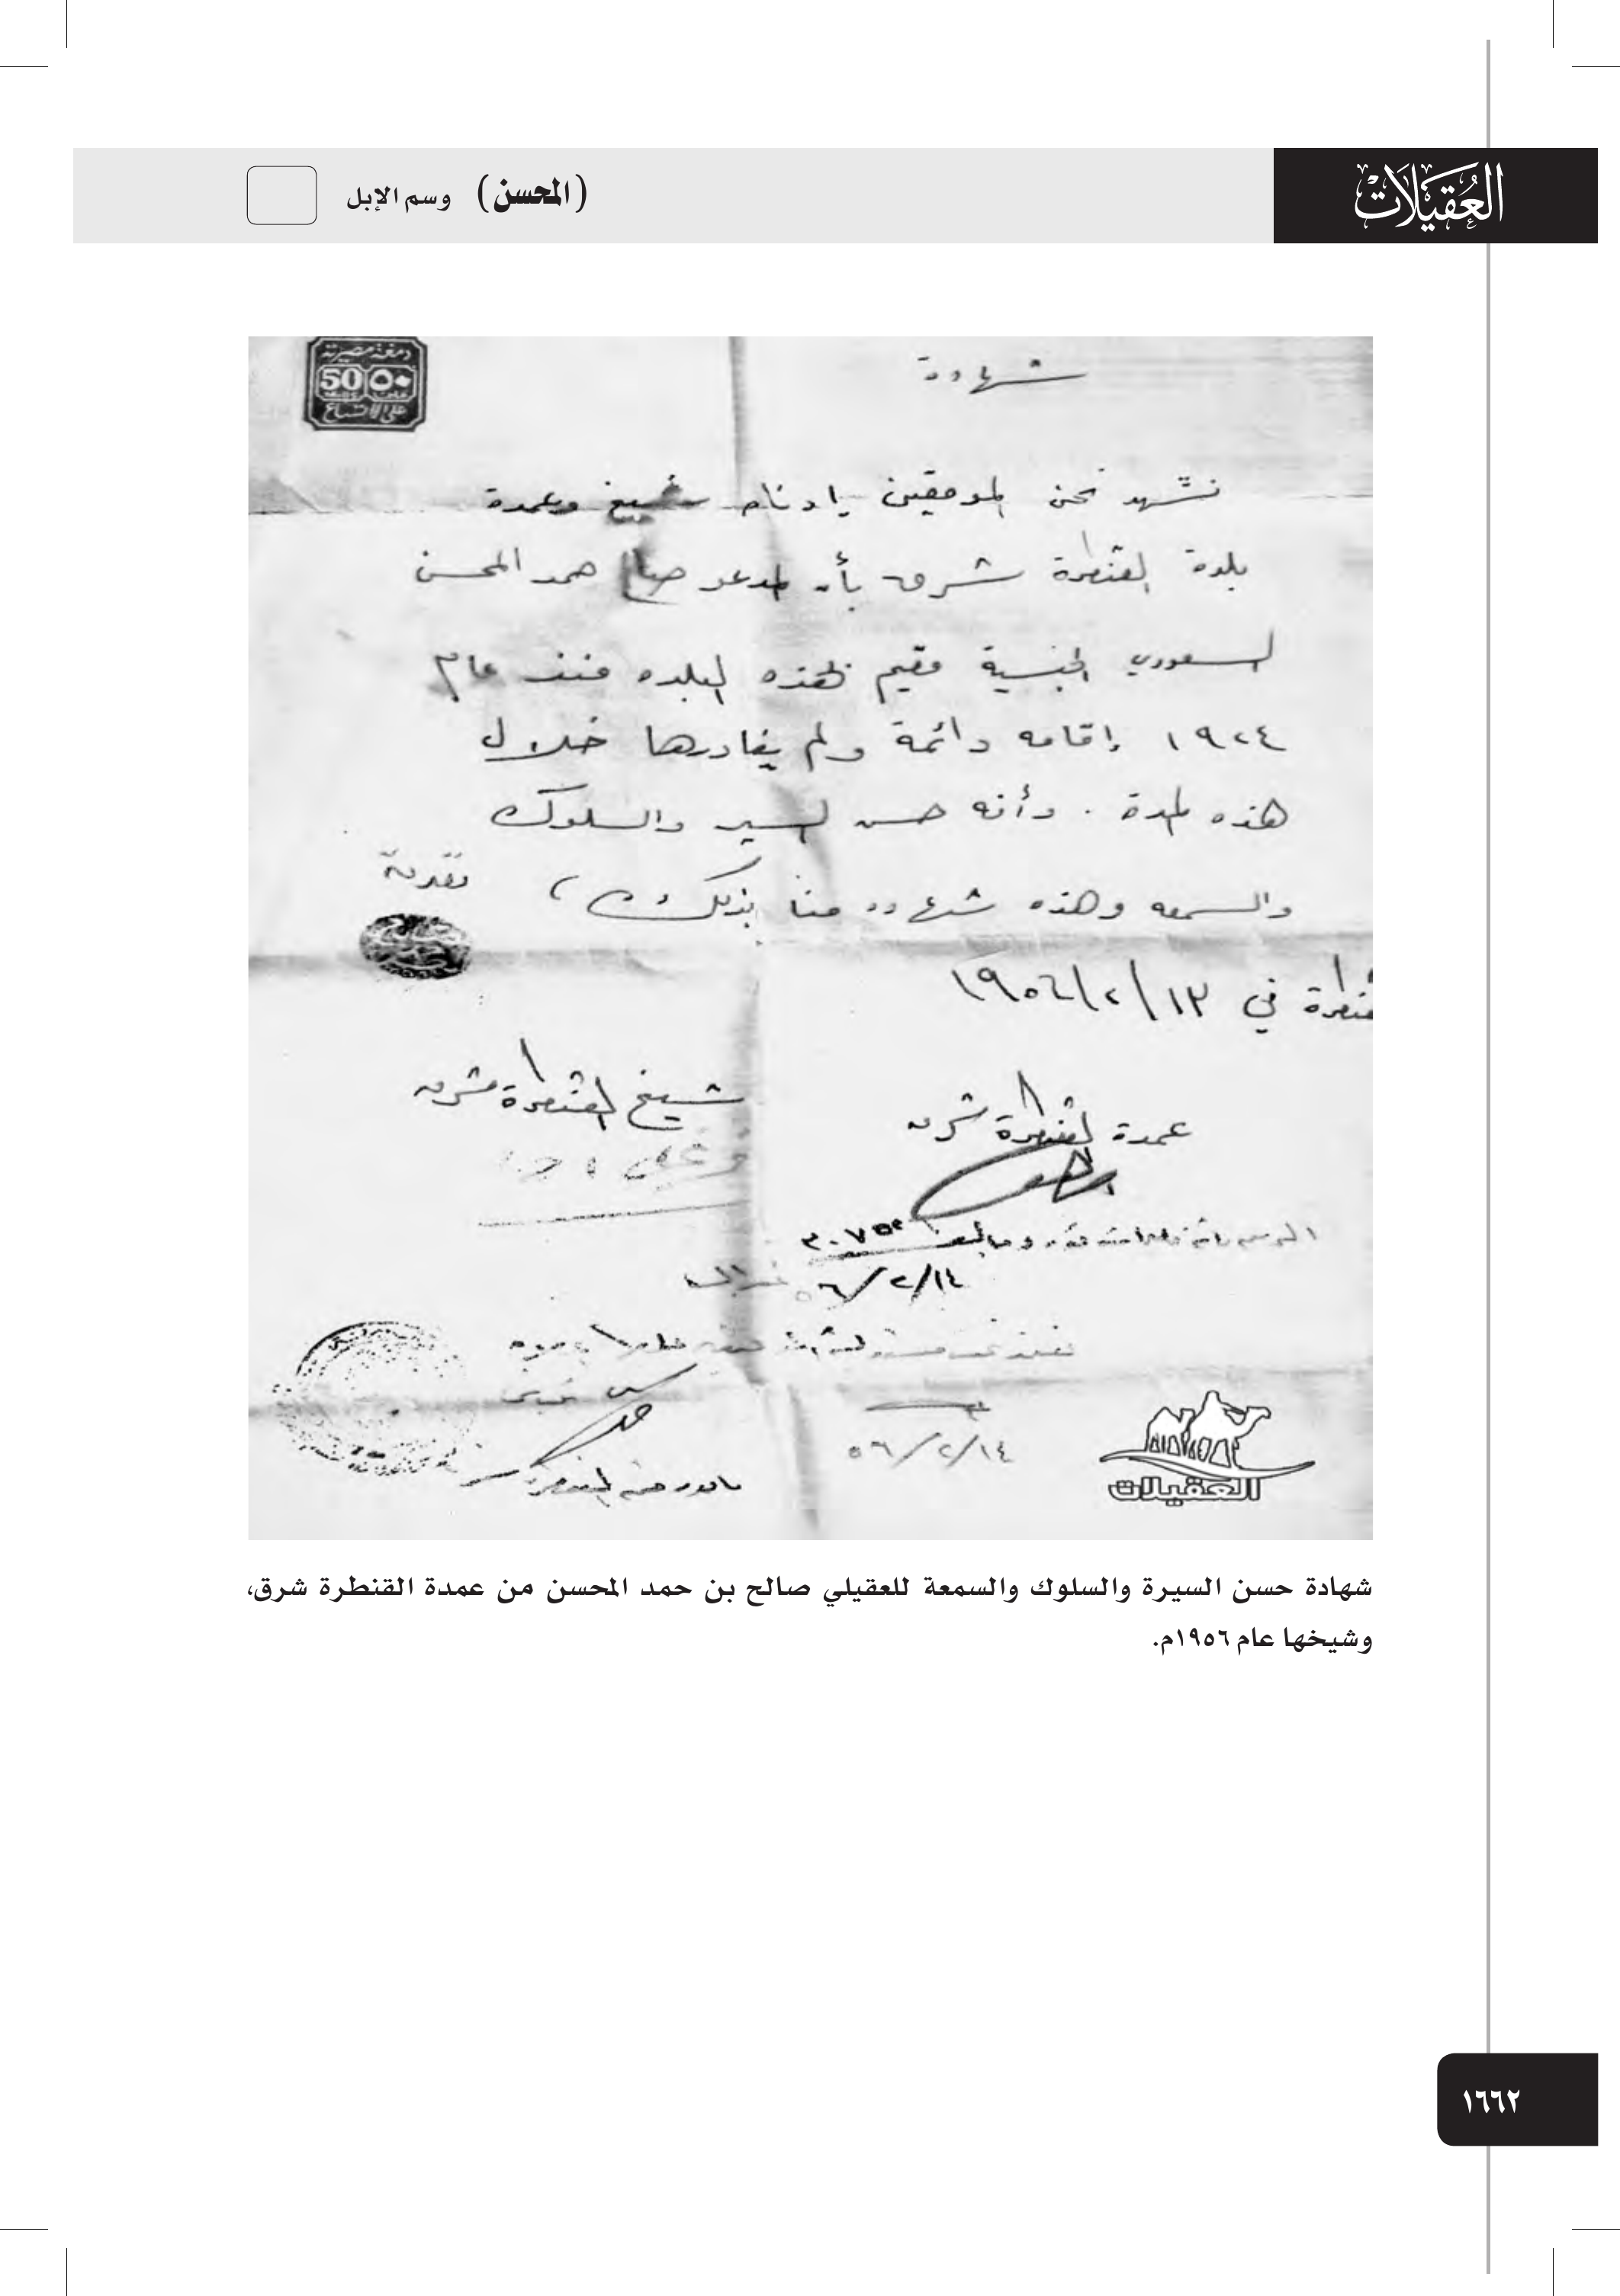 العُقَيْلَاتْ
(المحسن) وسم الإبل
دمغة مصرية
50 ٥٠
على الاتساع
شهادة
نشهد نحن الموقعين بادناه شيخ وعمدة
بلدة القنطرة شرق بأن المدعو صالح حمد المحسن
السعودي الجنسية مقيم بهذه البلده منذ عام
١٩٢٤ إقامه دائمة ولم يغادرها خلال
هذه المدة . وأنه حسن السير والسلوك
والسمعه وهذه شهاده منا بذلك
القنطرة في ١٣/٢/١٩٥٦
عمدة القنطرة شرق
شيخ القنطرة شرق
٥٦/٢/١٤
٥٦/٢/١٤
العقيلات
شهادة حسن السيرة والسلوك والسمعة للعقيلي صالح بن حمد المحسن من عمدة القنطرة شرق،
وشيخها عام ١٩٥٦م.
١٦٦٢